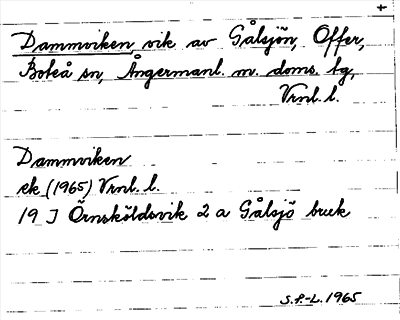 +
Dammviken, vik av Gålsjön, Offer,
Boteå sn, Ångermanl. m. doms. tg,
Vrnl. l.
Dammviken
ek (1965) Vrnl. l.
19 J Örnsköldsvik 2 a Gålsjö bruk
S.P-L. 1965